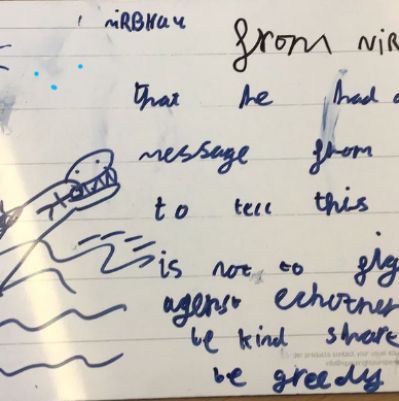 NiRBHau
from NiR
that he had a
message from
to tell this
is not to
agenst echother
be kind share
be greedy